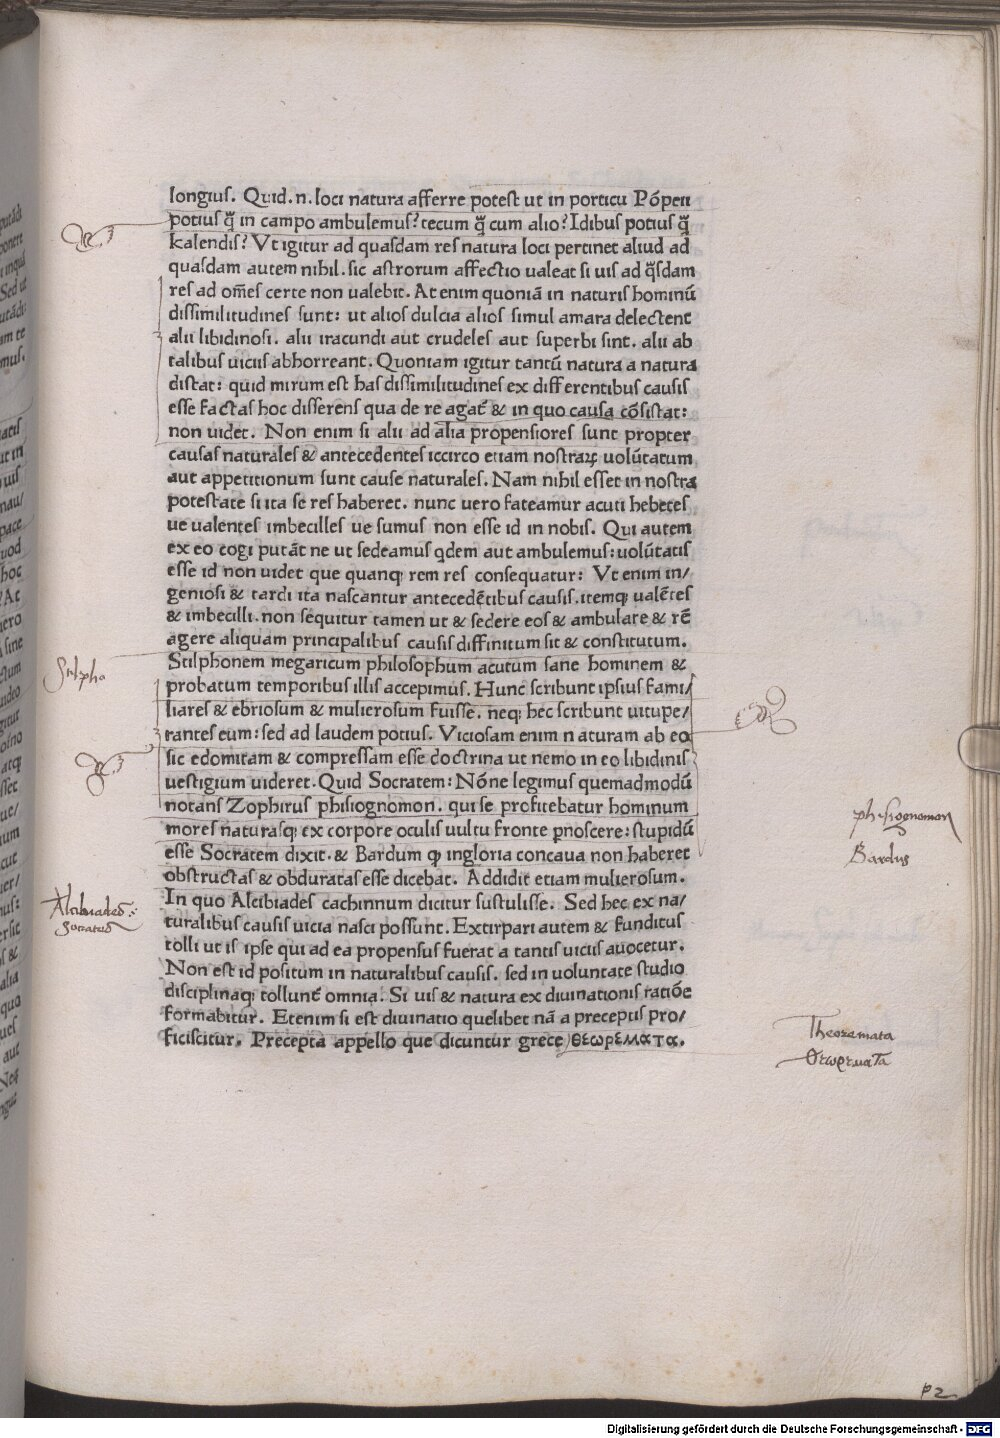 longius. Quid .n. loci natura afferre potest ut in porticu Pōpeii
potius q̃ in campo ambulemus? tecum q̃ cum alio? Idibus potius q̃
kalendis? Vt igitur ad quasdam res natura loci pertinet aliud ad
quasdam autem nihil. sic astrorum affectio ualeat si uis ad q̃sdam
res ad om̄es certe non ualebit. At enim quoniā in naturis hominū
dissimilitudines sunt: ut alios dulcia alios simul amara delectent
alii libidinosi. alii iracundi aut crudeles aut superbi sint. alii ab
talibus uiciis abhorreant. Quoniam igitur tantū natura a natura
distat: quid mirum est has dissimilitudines ex differentibus causis
esse factas hoc disserens qua de re agat̃ & in quo causa cōsistat:
non uidet. Non enim si alii ad alia propensiores sunt propter
causas naturales & antecedentes iccirco etiam nostraꝝ uolūtatum
aut appetitionum sunt cause naturales. Nam nihil esset in nostra
potestate si ita se res haberet. nunc uero fateamur acuti hebetes
ue ualentes imbecilles ue sumus non esse id in nobis. Qui autem
ex eo cogi putāt ne ut sedeamus qdem aut ambulemus: uolūtatis
esse id non uidet que quanq; rem res consequatur: Vt enim in/
geniosi & tardi ita nascantur antecedētibus causis. itemq; ualētes
& imbecilli. non sequitur tamen ut & sedere eos & ambulare & rē
agere aliquam principalibus causis diffinitum sit & constitutum.
Stilphonem megaricum philosophum acutum sane hominem &
probatum temporibus illis accepimus. Hunc scribunt ipsius fami/
liares & ebriosum & mulierosum fuisse. neq; hec scribunt uitupe/
rantes eum: sed ad laudem potius. Viciosam enim naturam ab eo
sic edomitam & compressam esse doctrina ut nemo in eo libidinis
uestigium uideret. Quid Socratem: Nōne legimus quemadmodū
notans Zophirus phisiognomon. qui se profitebatur hominum
mores naturasq; ex corpore oculis uultu fronte pnoscere: stupidū
esse Socratem dixit. & Bardum ꝙ ingloria concaua non haberet
obstructas & obduratas esse dicebat. Addidit etiam mulierosum.
In quo Alcibiades cachinnum dicitur sustulisse. Sed hec ex na/
turalibus causis uicia nasci possunt. Extirpari autem & funditus
tolli ut is ipse qui ad ea propensus fuerat a tantis uiciis auocetur.
Non est id positum in naturalibus causis. sed in uoluntate studio
disciplinaq; tollunt̃ omnia. Si uis & natura ex diuinationis ratiōe
formabitur. Etenim si est diuinatio quelibet nā a preceptis pro/
ficiscitur. Precepta appello que dicuntur grece θεωρεματα.
Stilpho
Alcibiades
Socrates
phisiognomon
Bardus
Theoremata
θεωρεματα
p 2
Digitalisierung gefördert durch die Deutsche Forschungsgemeinschaft - DFG